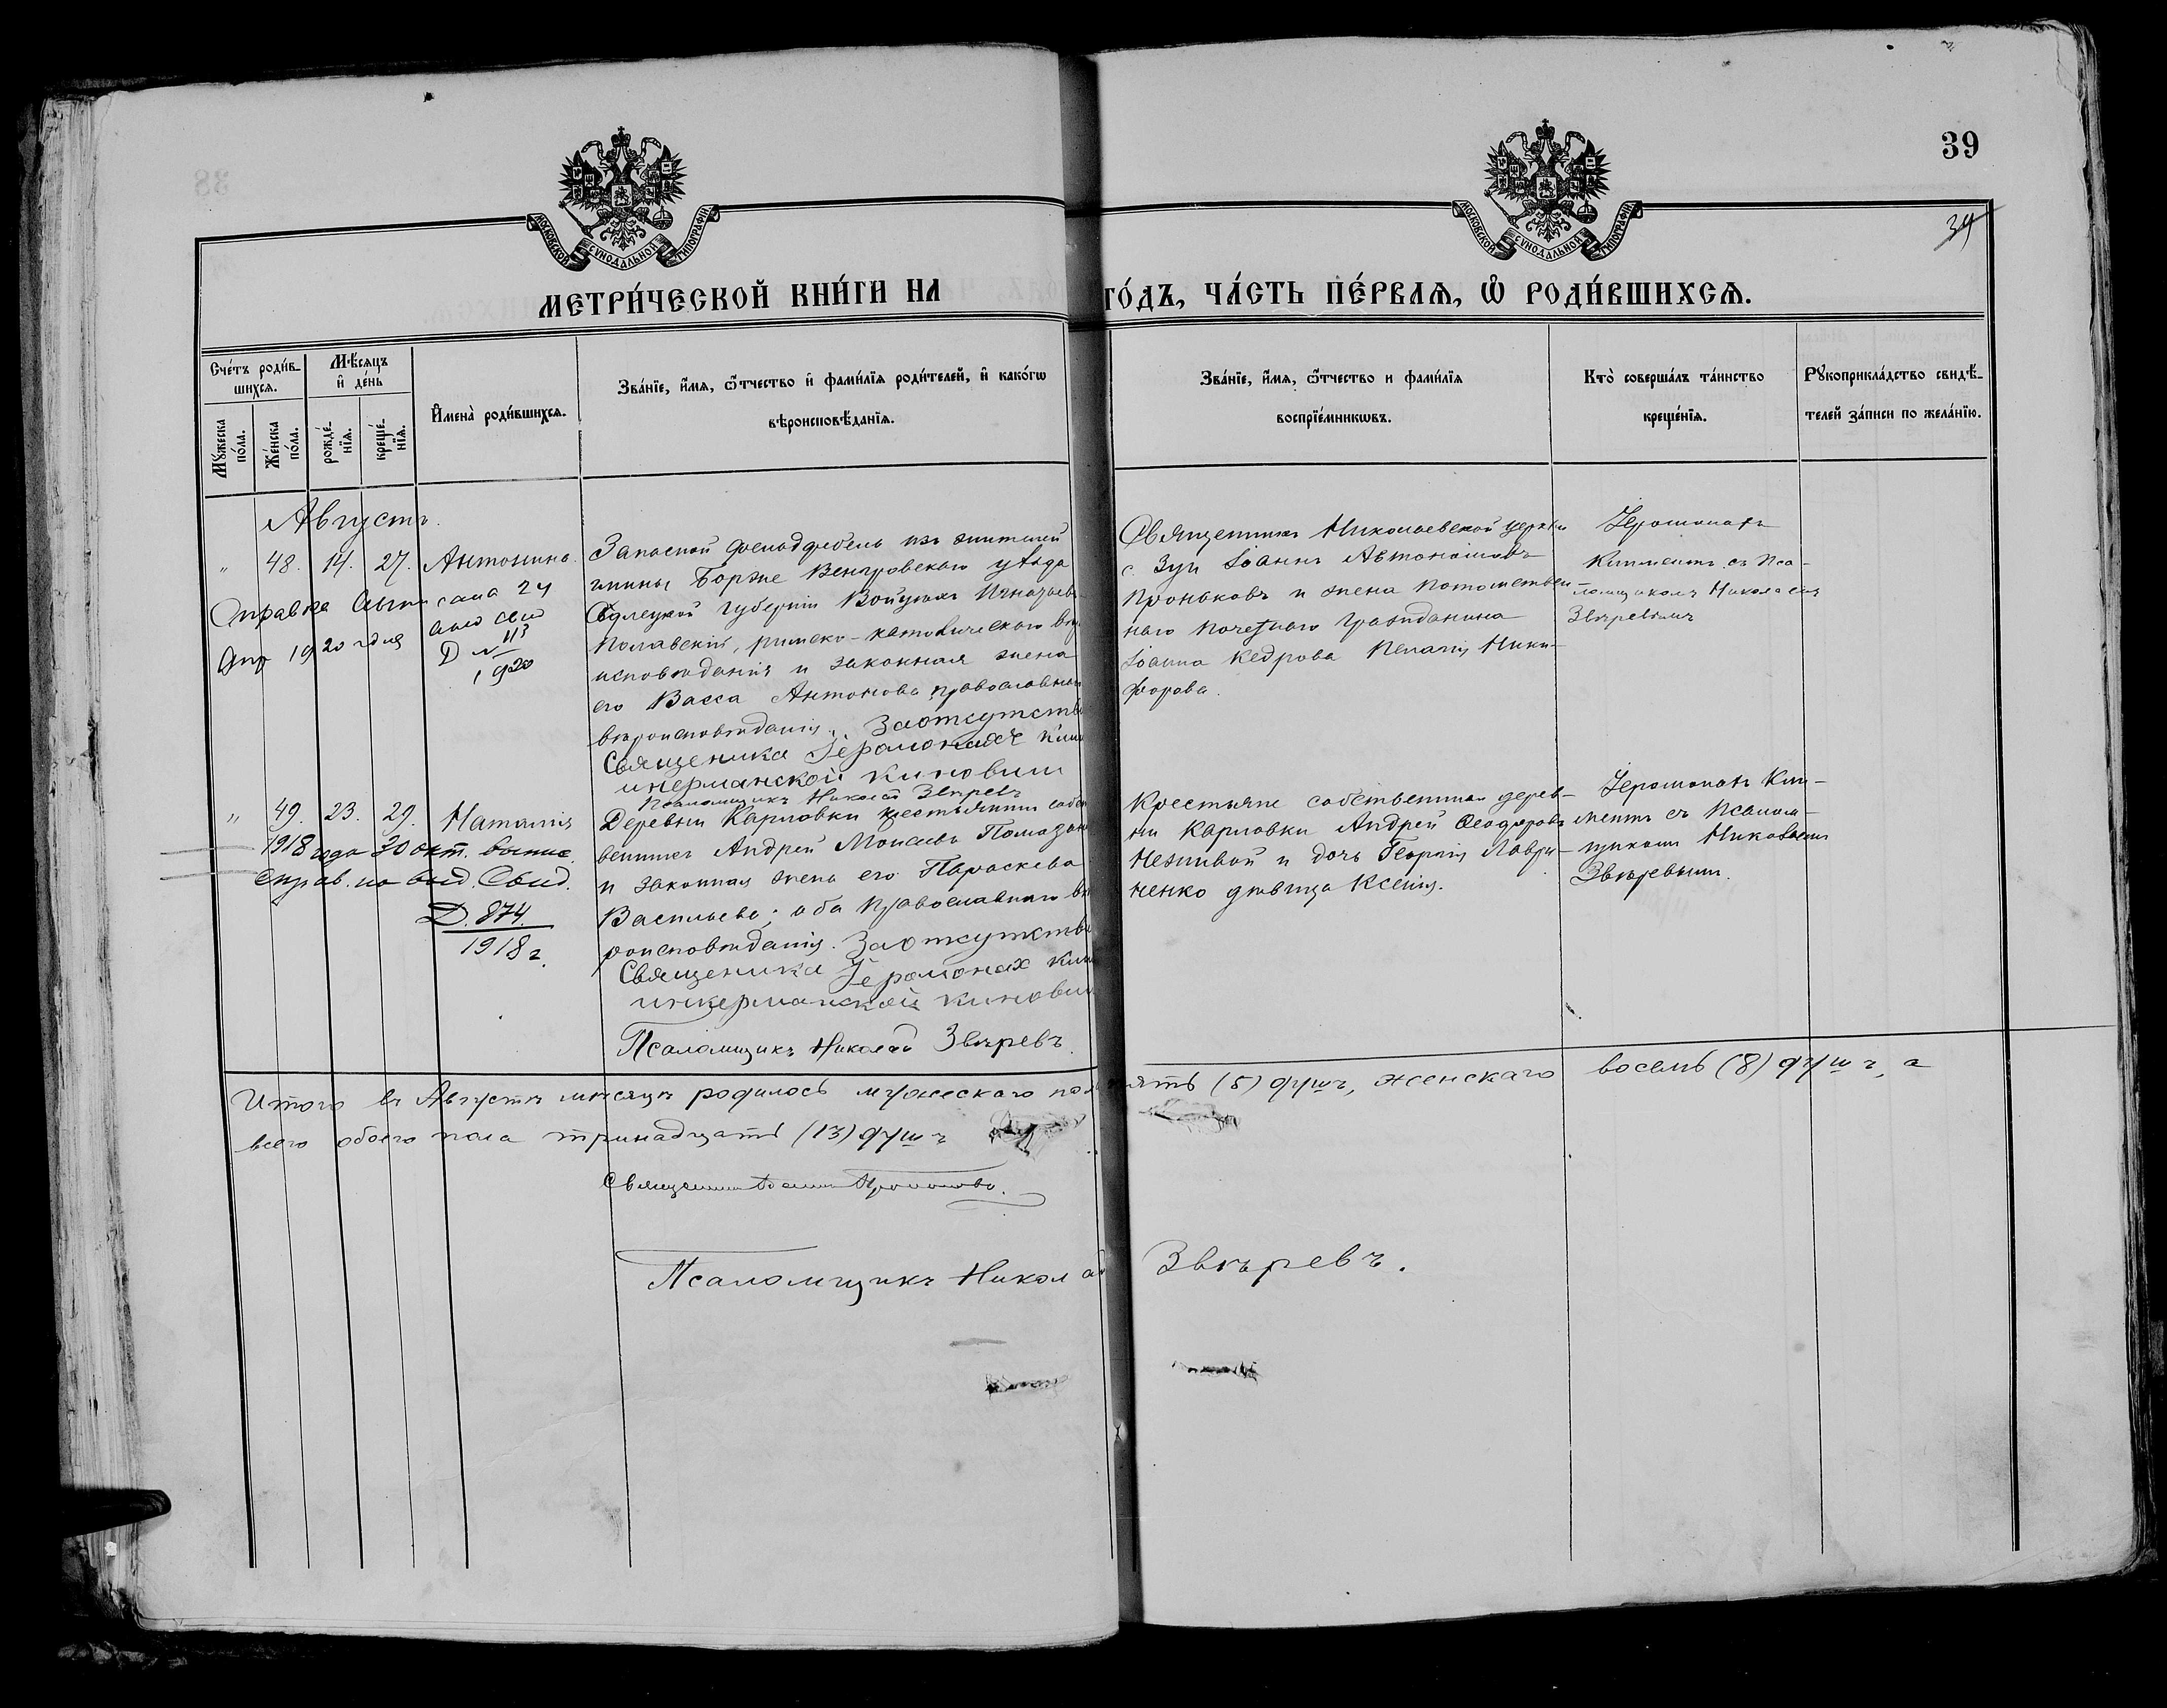 39
34
МОСКОВСКОЙ СУНОДАЛЬНОЙ ТИПОГРАФІИ
МОСКОВСКОЙ СУНОДАЛЬНОЙ ТИПОГРАФІИ
МЕТРИ́ЧЕСКОЙ КНИ́ГИ НА ГО́ДЪ, ЧА́СТЬ ПЕ́РВАЯ, Ѽ РОДИ́ВШИХСЯ.
Сче́тъ роди́в-
шихся.
Мꙋ́жеска по́ла.
Же́нска по́ла.
Мѣ́сяцъ
и҆ де́нь
рожде́-
нїя.
креще́-
нїя.
И҆мена̀ роди́вшихся.
Зва́нїе, и҆́мя, ѻ҆́тчество и҆ фами́лїя роди́телей, и҆ како́гѡ
вѣроисповѣ́данїя.
Зва́нїе, и҆́мя, ѻ҆́тчество и фами́лїя
воспрїе́мникѡвъ.
Кто̀ соверша́лъ та́инство
креще́нїя.
Рꙋкоприкла́дство свидѣ́-
телей за́писи по жела́нїю.
Августъ.
" 48. 14. 27. Антонина.
Справка
1920 года
1920
Запасной фельдфебель изъ
гмины Борже Венгровскаго уѣзда
Сѣдлецкой губерніи Войцехъ
римско-католическаго
исповѣданія и законная жена
его Васса Антонова православнаго
вѣроисповѣданія. За отсутств
Священика Іеромонахъ
инкерманской киновии
Псаломщикъ Николай Звѣревъ
Священникъ Николаевской церкви
с. Зуи Іоаннъ Автономовъ
Проньковъ и жена потомствен-
наго почетнаго гражданина
Іоанна Кедрова Пелагія Ники-
форова.
Іеромонахъ
Климентъ съ пса-
ломщикомъ Николаемъ
Звѣревымъ
" 49. 23. 29. Наталія
1918 года 30 окт. выпис.
справ. по выд. Свид.
Д. 874.
1918 г.
Деревни Карловки крестьянинъ собст
венникъ Андрей Моисеевъ
и законная жена его Параскева
Васильева; оба православнаго вѣ
роисповѣданія. За отсутств
Священика Іеромонах
инкерманской киновии
Псаломщикъ Николай Звѣревъ.
Крестьяне собственники дерев-
ни Карловки Андрей Ѳеодоровъ
Неживой и дочь Георгія Лаври-
ненко дѣвица Ксенія.
Іеромонахъ Кли-
ментъ съ псалом-
щикомъ Николаемъ
Звѣревымъ.
Итого въ Августѣ мѣсяцѣ родилось мужескаго пола пять (5) душъ, женскаго восемь (8) душъ, а
всего обоего пола тринадцать (13) душъ
Священникъ
Псаломщикъ Николай Звѣревъ.